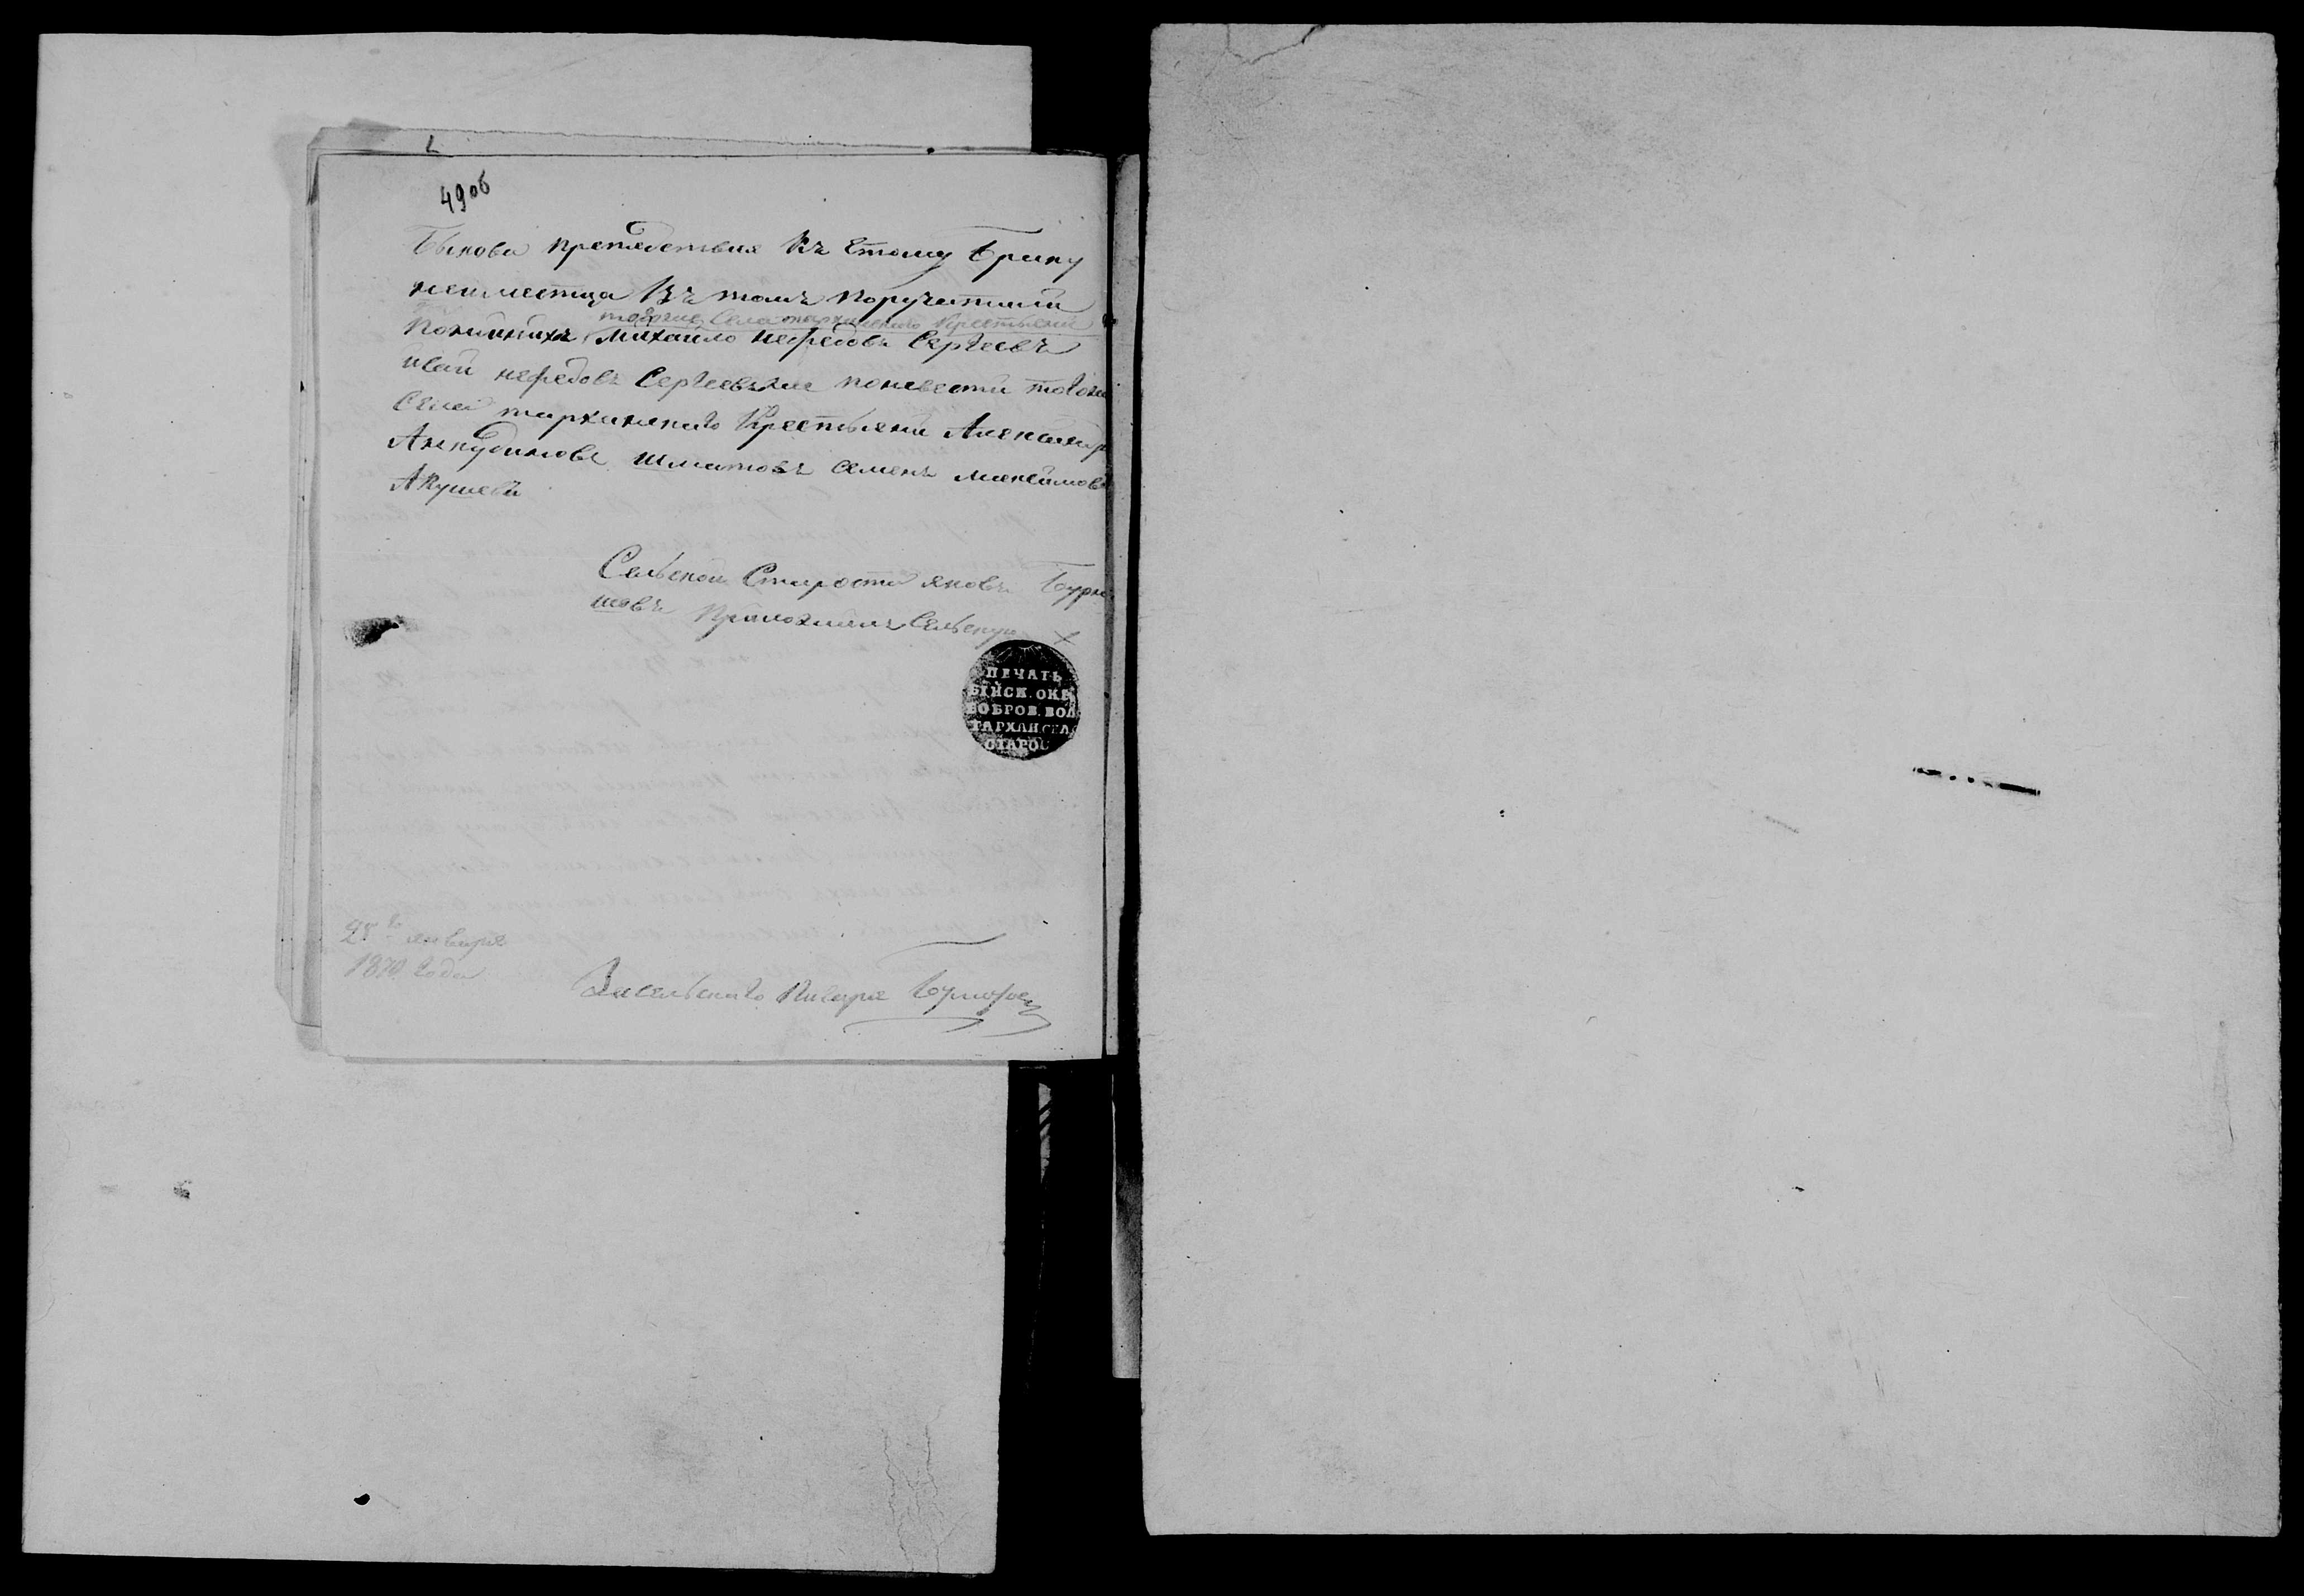 49об
Быкова препядствия Къ Етому Браку
неимеетца Въ томъ поручатили
тогоже Села тарханскаго Крестьяни
Поженихъ Михайло нефедовъ Сергеевъ
иван нефедовъ Сергеевъ поневести тогоже
Села тарханскаго Крестьяни Александр
Анкудиновъ шматовъ Семенъ Максимовъ
Акушевъ
Сельской Староста яковъ Бурма
шовъ Приложилъ Сельскую
ПЕЧАТЬ
БІЙСК. ОКР
БОБРОВ. ВОЛ
ТАРХАН. СЕЛ
СТАРОС
25го января
1870 Года
За сельскаго Писаря